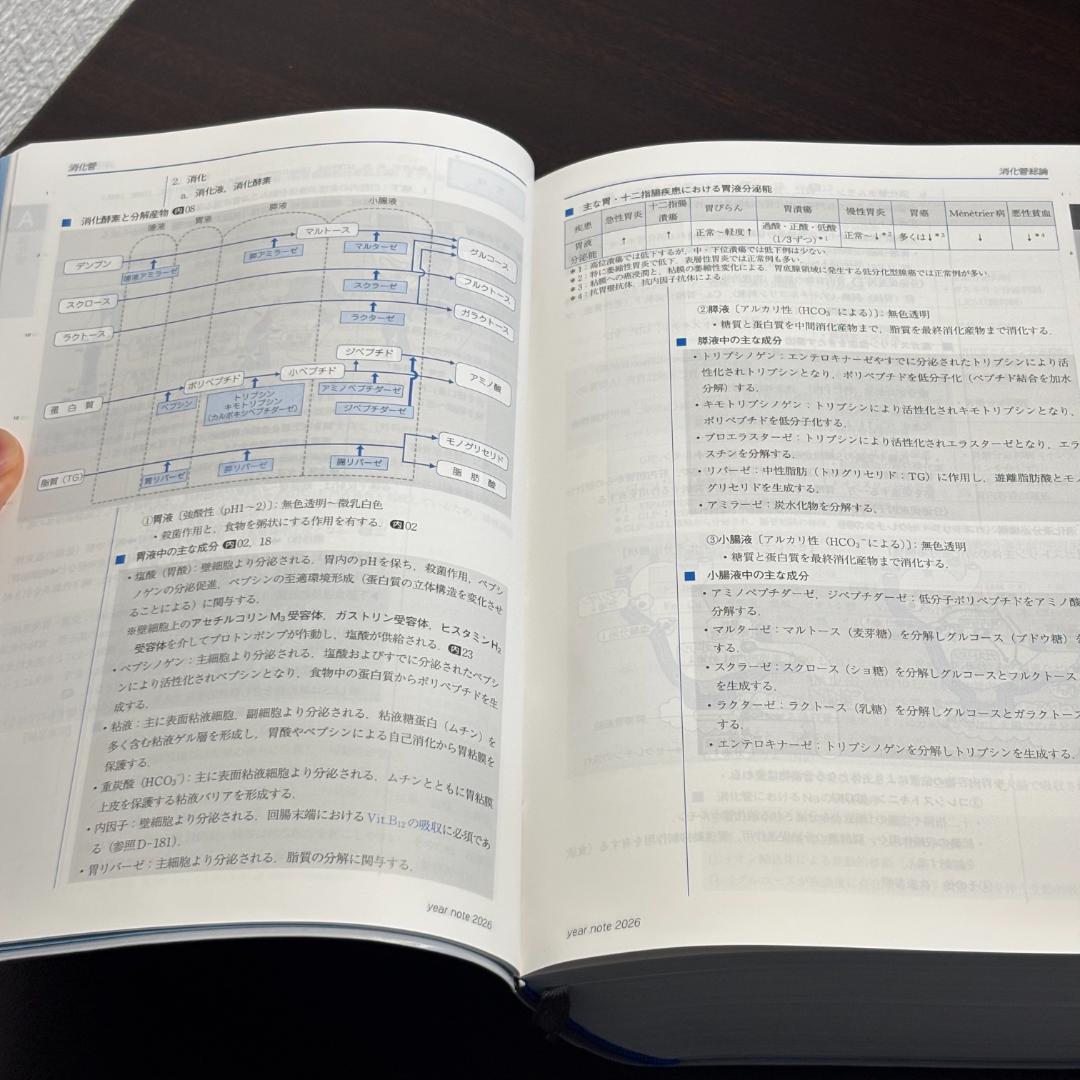 消化管
2. 消化
a. 消化液，消化酵素
■ 消化酵素と分解産物 内08
唾液 胃液 膵液 小腸液
デンプン
唾液アミラーゼ
膵アミラーゼ
マルトース
マルターゼ
グルコース
スクロース
スクラーゼ
フルクトース
ラクトース
ラクターゼ
ガラクトース
ジペプチド
蛋白質
ペプシン
ポリペプチド
トリプシン
キモトリプシン
(カルボキシペプチダーゼ)
小ペプチド
アミノペプチダーゼ
ジペプチダーゼ
アミノ酸
脂質 (TG)
胃リパーゼ
膵リパーゼ
腸リパーゼ
モノグリセリド
脂肪酸
①胃液〔強酸性（pH1～2）〕：無色透明～微乳白色
・殺菌作用と，食物を粥状にする作用を有する．内02
■ 胃液中の主な成分 内02，18
・塩酸（胃酸）：壁細胞より分泌される．胃内のpHを保ち，殺菌作用，ペプシ
ノゲンの分泌促進，ペプシンの至適環境形成（蛋白質の立体構造を変化させ
ることによる）に関与する．
※壁細胞上のアセチルコリンM₃受容体，ガストリン受容体，ヒスタミンH₂
受容体を介してプロトンポンプが作動し，塩酸が供給される．内23
・ペプシノゲン：主細胞より分泌される．塩酸およびすでに分泌されたペプシ
ンにより活性化されペプシンとなり，食物中の蛋白質からポリペプチドを生
成する．
・粘液：主に表面粘液細胞，副細胞より分泌される．粘液糖蛋白（ムチン）を
多く含む粘液ゲル層を形成し，胃酸やペプシンによる自己消化から胃粘膜を
保護する．
・重炭酸（HCO₃⁻）：主に表面粘液細胞より分泌される．ムチンとともに胃粘膜
上皮を保護する粘液バリアを形成する．
・内因子：壁細胞より分泌される．回腸末端におけるVit.B₁₂の吸収に必須であ
る（参照D-181）．
・胃リパーゼ：主細胞より分泌される．脂質の分解に関与する．
year note 2026
消化管総論
■ 主な胃・十二指腸疾患における胃液分泌能
疾患 急性胃炎 十二指腸潰瘍 胃びらん 胃潰瘍 慢性胃炎 胃癌 Ménétrier病 悪性貧血
胃液分泌能 ↑ ↑ 正常～軽度↑ 過酸・正酸・低酸（1/3ずつ）*1 正常～↓*2 多くは↓*3 ↓ ↓*4
*1：高位潰瘍では低下するが，中・下位潰瘍では低下例は少ない．
*2：特に萎縮性胃炎で低下．表層性胃炎では正常例も多い．
*3：粘膜への癌浸潤と，粘膜の萎縮性変化による．胃底腺領域に発生する低分化型腺癌では正常例が多い．
*4：抗胃壁抗体，抗内因子抗体による．
②膵液〔アルカリ性（HCO₃⁻による）〕：無色透明
・糖質と蛋白質を中間消化産物まで，脂質を最終消化産物まで消化する．
■ 膵液中の主な成分
・トリプシノゲン：エンテロキナーゼやすでに分泌されたトリプシンにより活
性化されトリプシンとなり，ポリペプチドを低分子化（ペプチド結合を加水
分解）する．
・キモトリプシノゲン：トリプシンにより活性化されキモトリプシンとなり，
ポリペプチドを低分子化する．
・プロエラスターゼ：トリプシンにより活性化されエラスターゼとなり，エラ
スチンを分解する．
・リパーゼ：中性脂肪（トリグリセリド：TG）に作用し，遊離脂肪酸とモノ
グリセリドを生成する．
・アミラーゼ：炭水化物を分解する．
③小腸液〔アルカリ性（HCO₃⁻による）〕：無色透明
・糖質と蛋白質を最終消化産物まで消化する．
■ 小腸液中の主な成分
・アミノペプチダーゼ，ジペプチダーゼ：低分子ポリペプチドをアミノ酸
分解する．
・マルターゼ：マルトース（麦芽糖）を分解しグルコース（ブドウ糖）を
する．
・スクラーゼ：スクロース（ショ糖）を分解しグルコースとフルクトース
を生成する．
・ラクターゼ：ラクトース（乳糖）を分解しグルコースとガラクトース
する．
・エンテロキナーゼ：トリプシノゲンを分解しトリプシンを生成する．
year note 2026